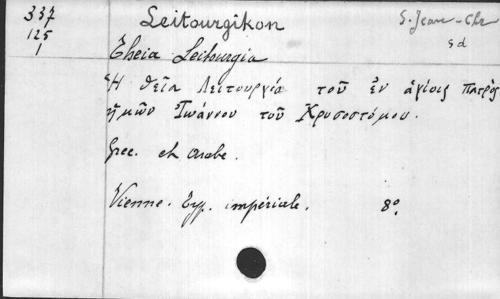 337
125
1
Leitourgikon
S. Jean-Chr
s d
Theia Leitourgia
Ἡ Θεῖα Λειτουργία τοῦ ἐν ἁγίοις πατρὸς
ἡμῶν Ἰωάννου τοῦ Χρυσοστόμου.
Grec. et arabe.
Vienne. Typ. impériale. 8º.